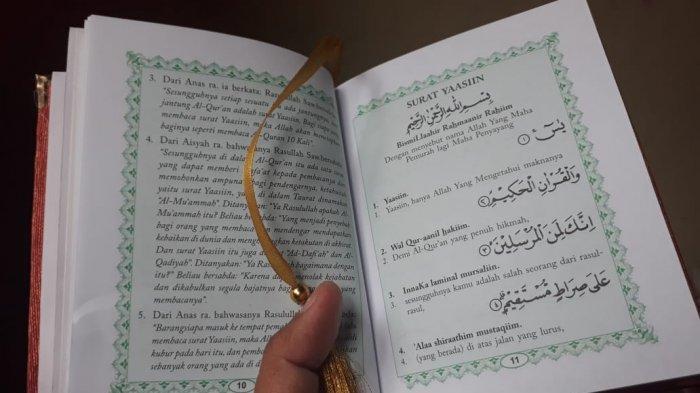 3. Dari Anas ra. ia berkata: Rasulullah Saw
"Sesungguhnya setiap sesuatu ada jantungnya,
jantung Al-Qur'an adalah surat Yaasiin. Bagi siapa
membaca surat Yaasiin, maka Allah akan
baginya seperti membaca Qur'an 10 Kali".
4. Dari Aisyah ra. bahwasanya Rasulullah Saw
"Sesungguhnya di dalam Al-Qur'an itu ada satu
yang dapat memberi kepada pembacanya dan
memohonkan ampunan bagi pendengarnya, ketahuilah
yaitu surat Yaasiin, yang di dalam Taurat dinamakan
"Al-Mu'ammah". Ditanyakan: "Ya Rasulullah apakah Al-
Mu'ammah itu? Beliau bersabda: "Yang menjadi penyebab
bagi orang yang membacanya dan mendengar mendapatkan
kebaikan di dunia dan ketakutan di akhirat.
Dan surat Yaasiin itu juga "Ad-Dafi'ah" dan Al-
Qadiyah". Ditanyakan: "Ya Rasulullah bagaimana dengan
itu?" Beliau bersabda: "Karena dapat menolak kejahatan
dan dikabulkan segala hajatnya bagi yang
membacanya".
5. Dari Anas ra. bahwasanya Rasulullah
"Barangsiapa masuk ke tempat
membaca surat Yaasiin, maka
kubur pada hari itu, dan
sebanyak orang yang ada di
10
SURAT YAASIIN
بِسْمِ اللّٰهِ الرَّحْمٰنِ الرَّحِيْمِ
BismiLlaahir Rahmaanir Rahiim
Dengan menyebut nama Allah Yang Maha
Pemurah lagi Maha Penyayang
يٰسۤ ۚ ﴿١﴾
1. Yaasiin.
1. Yaasiin, hanya Allah Yang Mengetahui maknanya
وَالْقُرْاٰنِ الْحَكِيْمِ ﴿٢﴾
2. Wal Qur-aanil hakiim.
2. Demi Al-Qur'an yang penuh hikmah,
اِنَّكَ لَمِنَ الْمُرْسَلِيْنَ ﴿٣﴾
3. InnaKa laminal mursaliin.
3. sesungguhnya kamu adalah salah seorang dari rasul-
rasul,
عَلٰى صِرَاطٍ مُّسْتَقِيْمٍ ﴿٤﴾
4. 'Alaa shiraathim mustaqiim.
4. (yang berada) di atas jalan yang lurus,
11